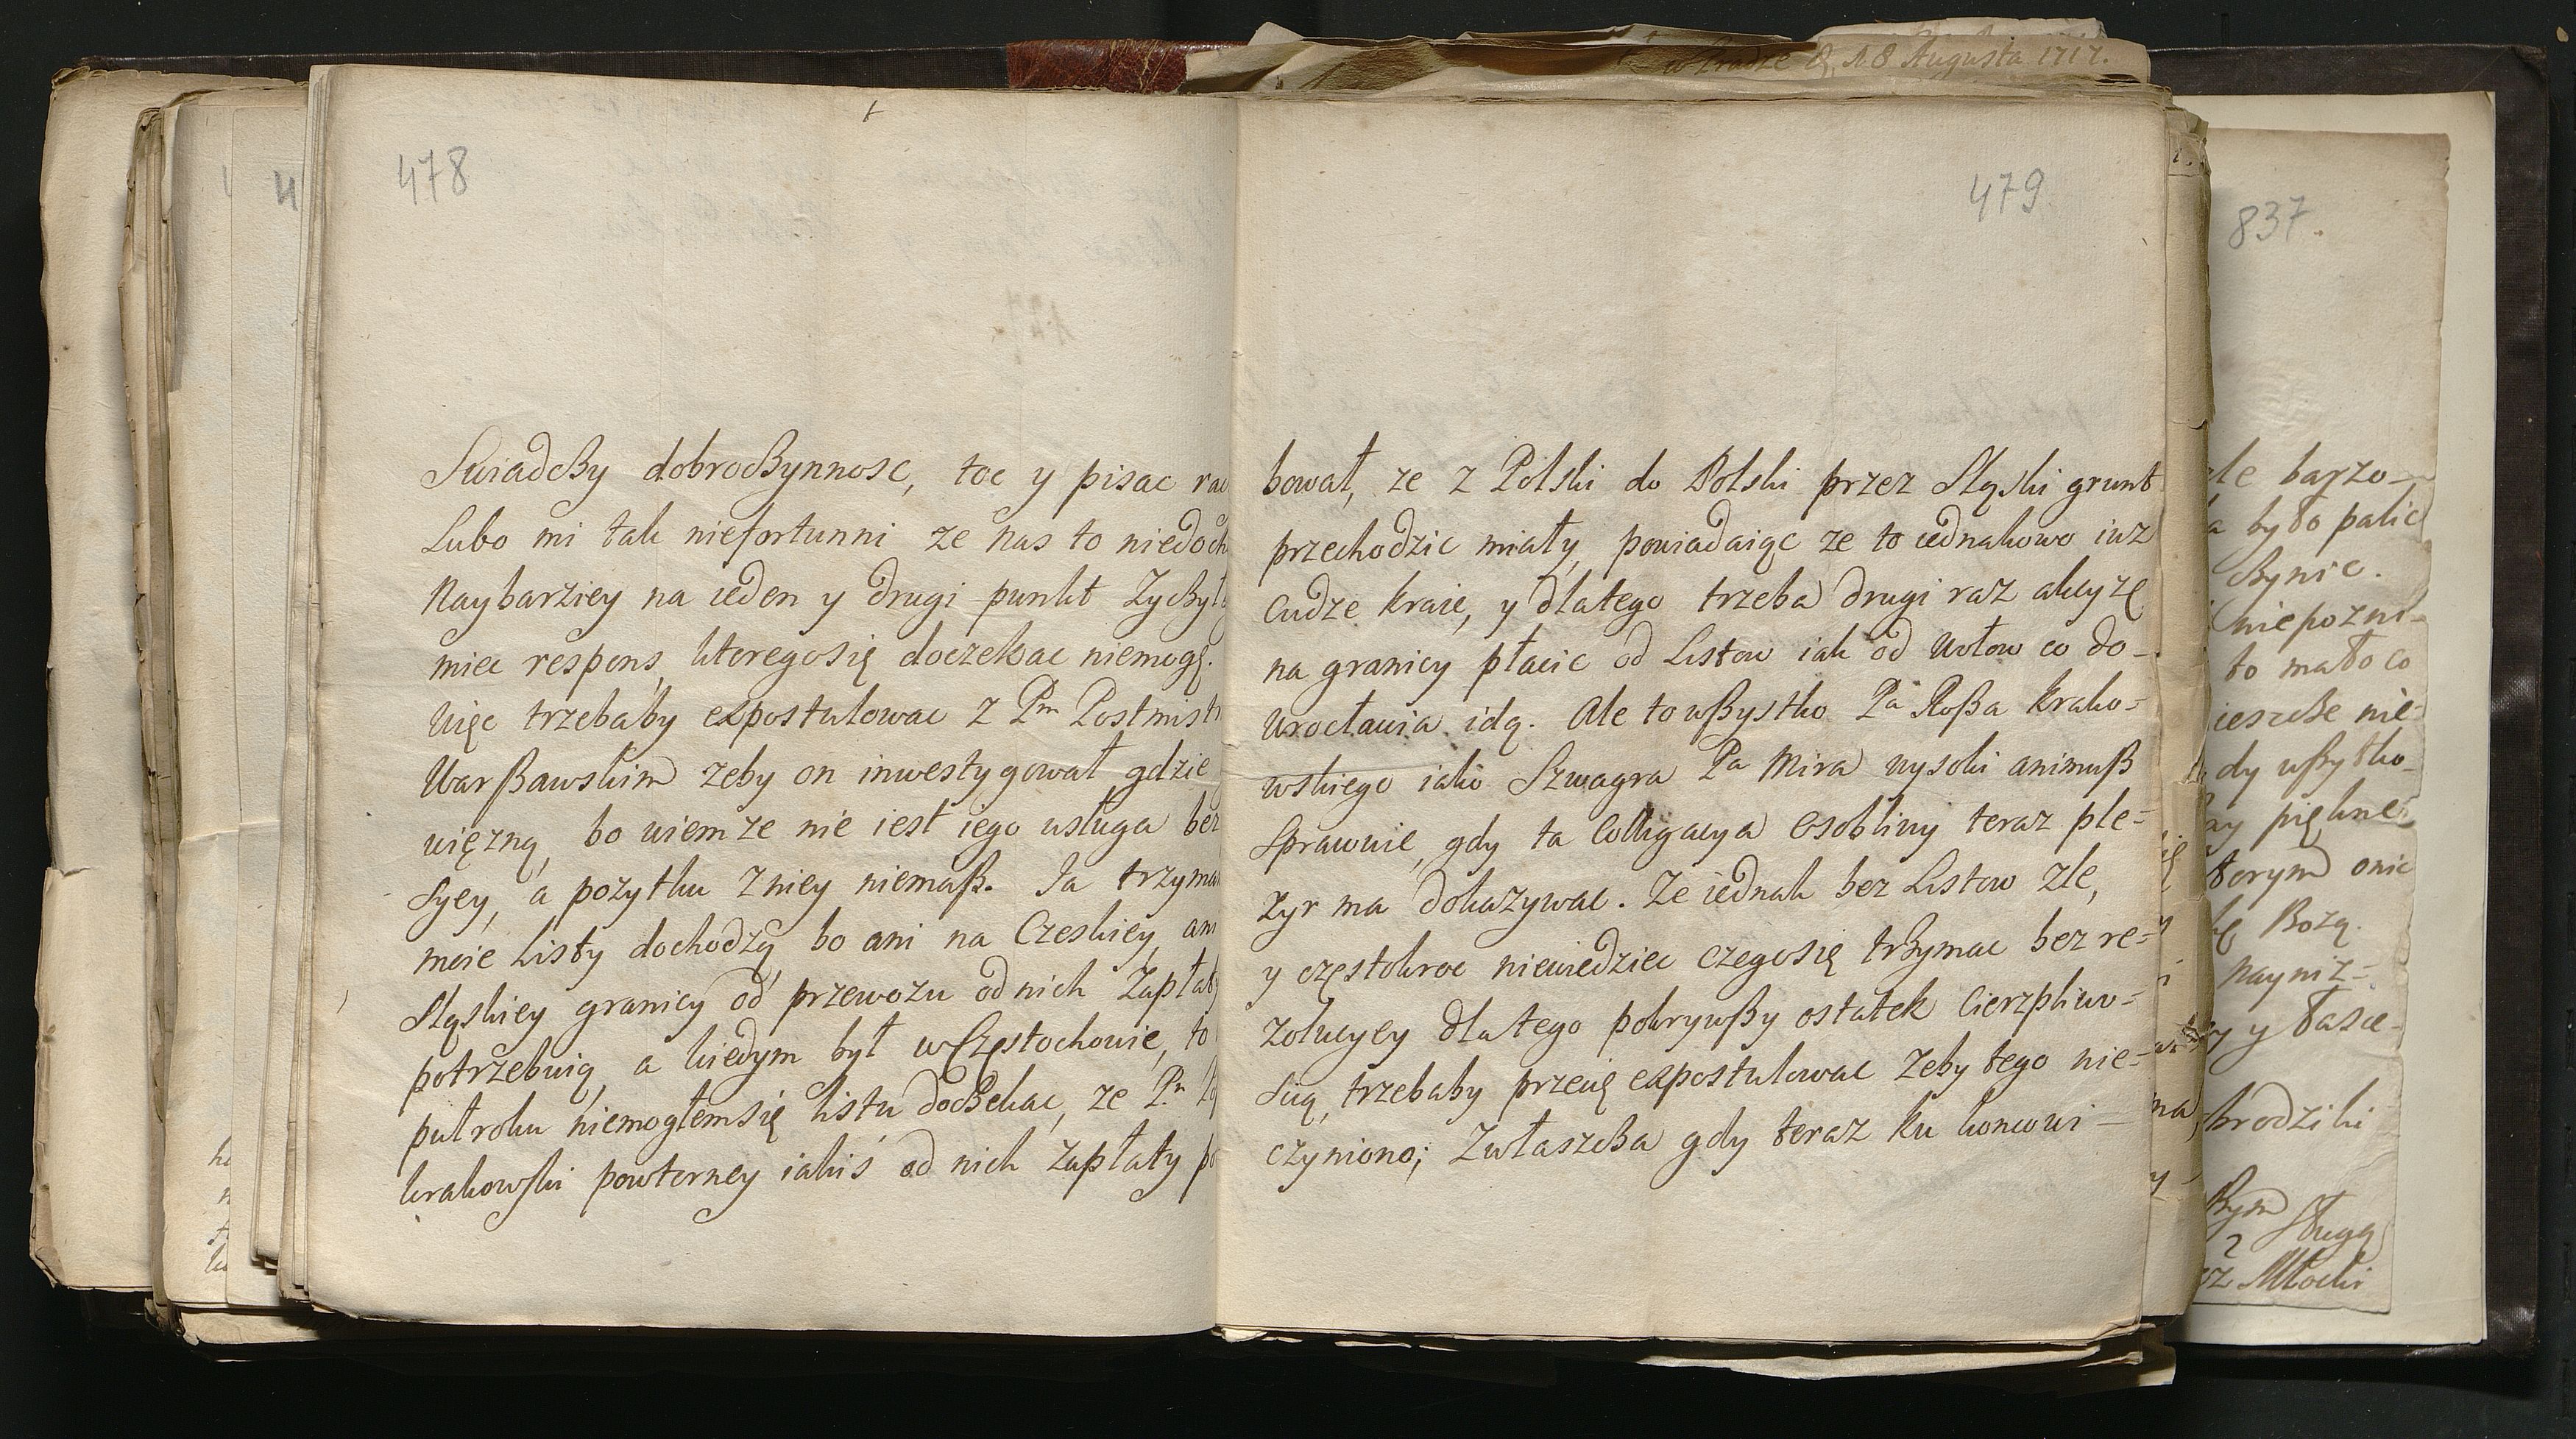 w Pradze D. 18 Augusta 1717.
478
Swiadcży dobrocżynnosc, toc y pisac rac
Lubo mi tak niefortunni ze nas to niedoch
Naybarziey na ieden y drugi punkt Zycżył
miec respons, ktoregosię doczekac niemogę.
Więc trzebaby expostulowac z Pm Postmistr
Warßawskim zeby on inwestygował gdzie
więzną, bo wiem ze nie iest iego usługa bez
a pozytku z niey niemaß. Ja trzyma
moie Listy dochodzą, bo ani na Czeskiey, ani
Sląskiey granicy od przewozu od nich Zapłaty
potrzebuią, a kiedym był w Częstochowie, to
puł roku niemogłemsię listu docżekac, ze Pn
krakowski powtorney iakiś od nich zapłaty po
479.
bował, ze z Polski do Polski przez Sląski grunt
przechodzic miały, powiadaiąc ze to iednakowo iuz
Cudze kraie, y dlatego trzeba drugi raz akcyzę
na granicy płacic od Listow iak od Wołow co do-
Wrocławia idą. Ale to wßystko Pa Roßa krako=
wskiego iako Szwagra Pa Mira wysoki animuß
Sprawuie, gdy ta Colligacya osobliwy teraz ple=
zyr ma dokazywac. Ze iednak bez Listow zle,
y częstokroc niewiedziec czegosię trżymac bez re=
zolucyey dlatego pokrywßy ostatek Cierzpliwo=
scią, trzebaby przecię expostulowac Zeby tego nie=
czyniono; Zwłaszcża gdy teraz ku koncowi —
837.
barzo-
było palic
cżynic.
niepozni-
to mało co
ieszcże nie-
dy wßytko-
piękne
ktorym onie
Bozą.
nayniz=
y łasce-
hrodzili
Sługą
Młocki